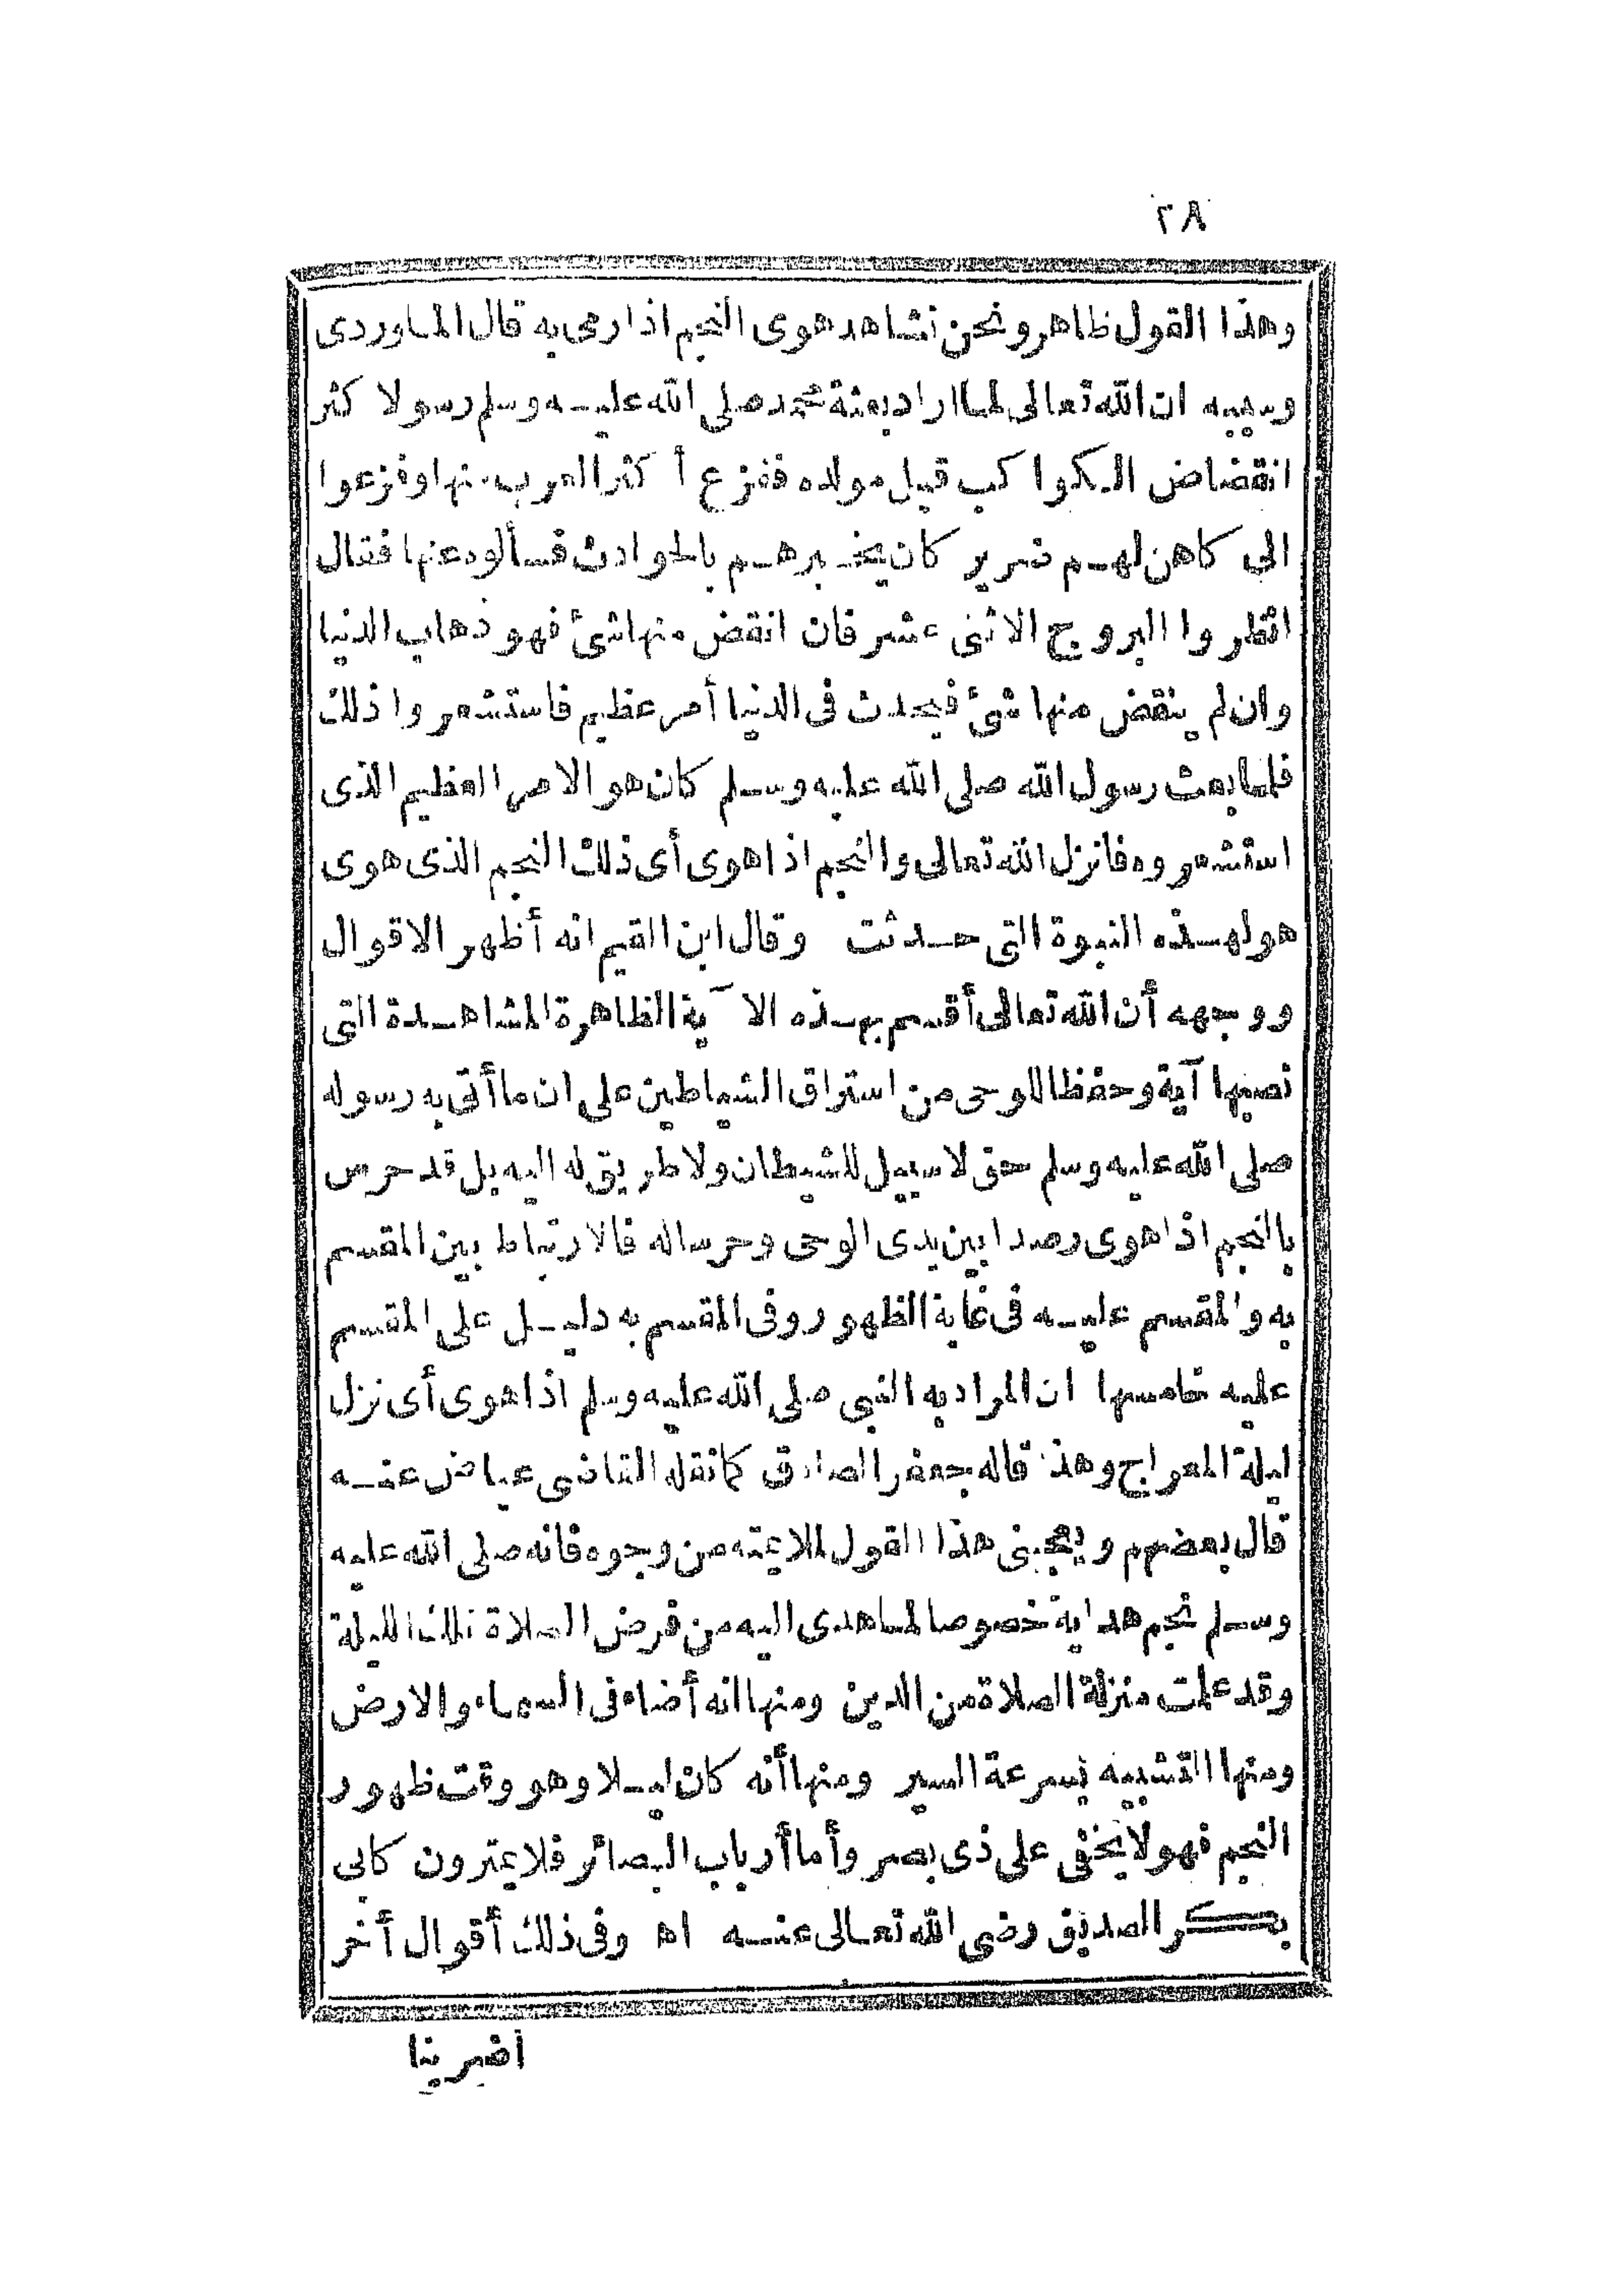 ٢٨
وهذا القول ظاهر ونحن نشاهد هوى النجم اذا رمى به قال الماوردى
وسببه ان الله تعالى لما اراد بعثة محمد صلى الله عليه وسلم رسولا كثر
انقضاض الكواكب قبل مولده ففزع أكثر العرب منها وفزعوا
الى كاهن لهم ضرير كان يخبرهم بالحوادث فسألوه عنها فقال
انظروا البروج الاثنى عشر فان انقض منها شئ فهو ذهاب الدنيا
وان لم ينقض منها شئ فيحدث فى الدنيا أمر عظيم فاستشعروا ذلك
فلما بعث رسول الله صلى الله عليه وسلم كان هو الامر العظيم الذى
استشعروه فانزل الله تعالى والنجم اذا هوى أى ذلك النجم الذى هوى
هو لهذه النبوة التى حدثت وقال ابن القيم انه أظهر الاقوال
ووجهه أن الله تعالى أقسم بهذه الآية الظاهرة المشاهدة التى
نصبها آية وحفظا للوحى من استراق الشياطين على ان ما أتى به رسوله
صلى الله عليه وسلم حق لا سبيل للشيطان ولا طريق له اليه بل قد حرس
بالنجم اذا هوى رصدا بين يدى الوحى وحرسا له فالارتباط بين المقسم
به والمقسم عليه فى غاية الظهور وفى المقسم به دليل على المقسم
عليه خامسها ان المراد به النبى صلى الله عليه وسلم اذا هوى أى نزل
ليلة المعراج وهذا قاله جعفر الصادق كما نقله القاضى عياض عنه
قال بعضهم ويعجبنى هذا القول لملائمته من وجوه فانه صلى الله عليه
وسلم نجم هداية خصوصا لما هدى اليه من فرض الصلاة تلك الليلة
وقد علمت منزلة الصلاة من الدين ومنها انه أضاء فى السماء والارض
ومنها التشبيه بسرعة السير ومنها أنه كان ليلا وهو وقت ظهور
النجم فهو لا يخفى على ذى بصر وأما أرباب البصائر فلا يمترون كابى
بكر الصديق رضى الله تعالى عنه اه وفى ذلك أقوال أخر
اضربنا